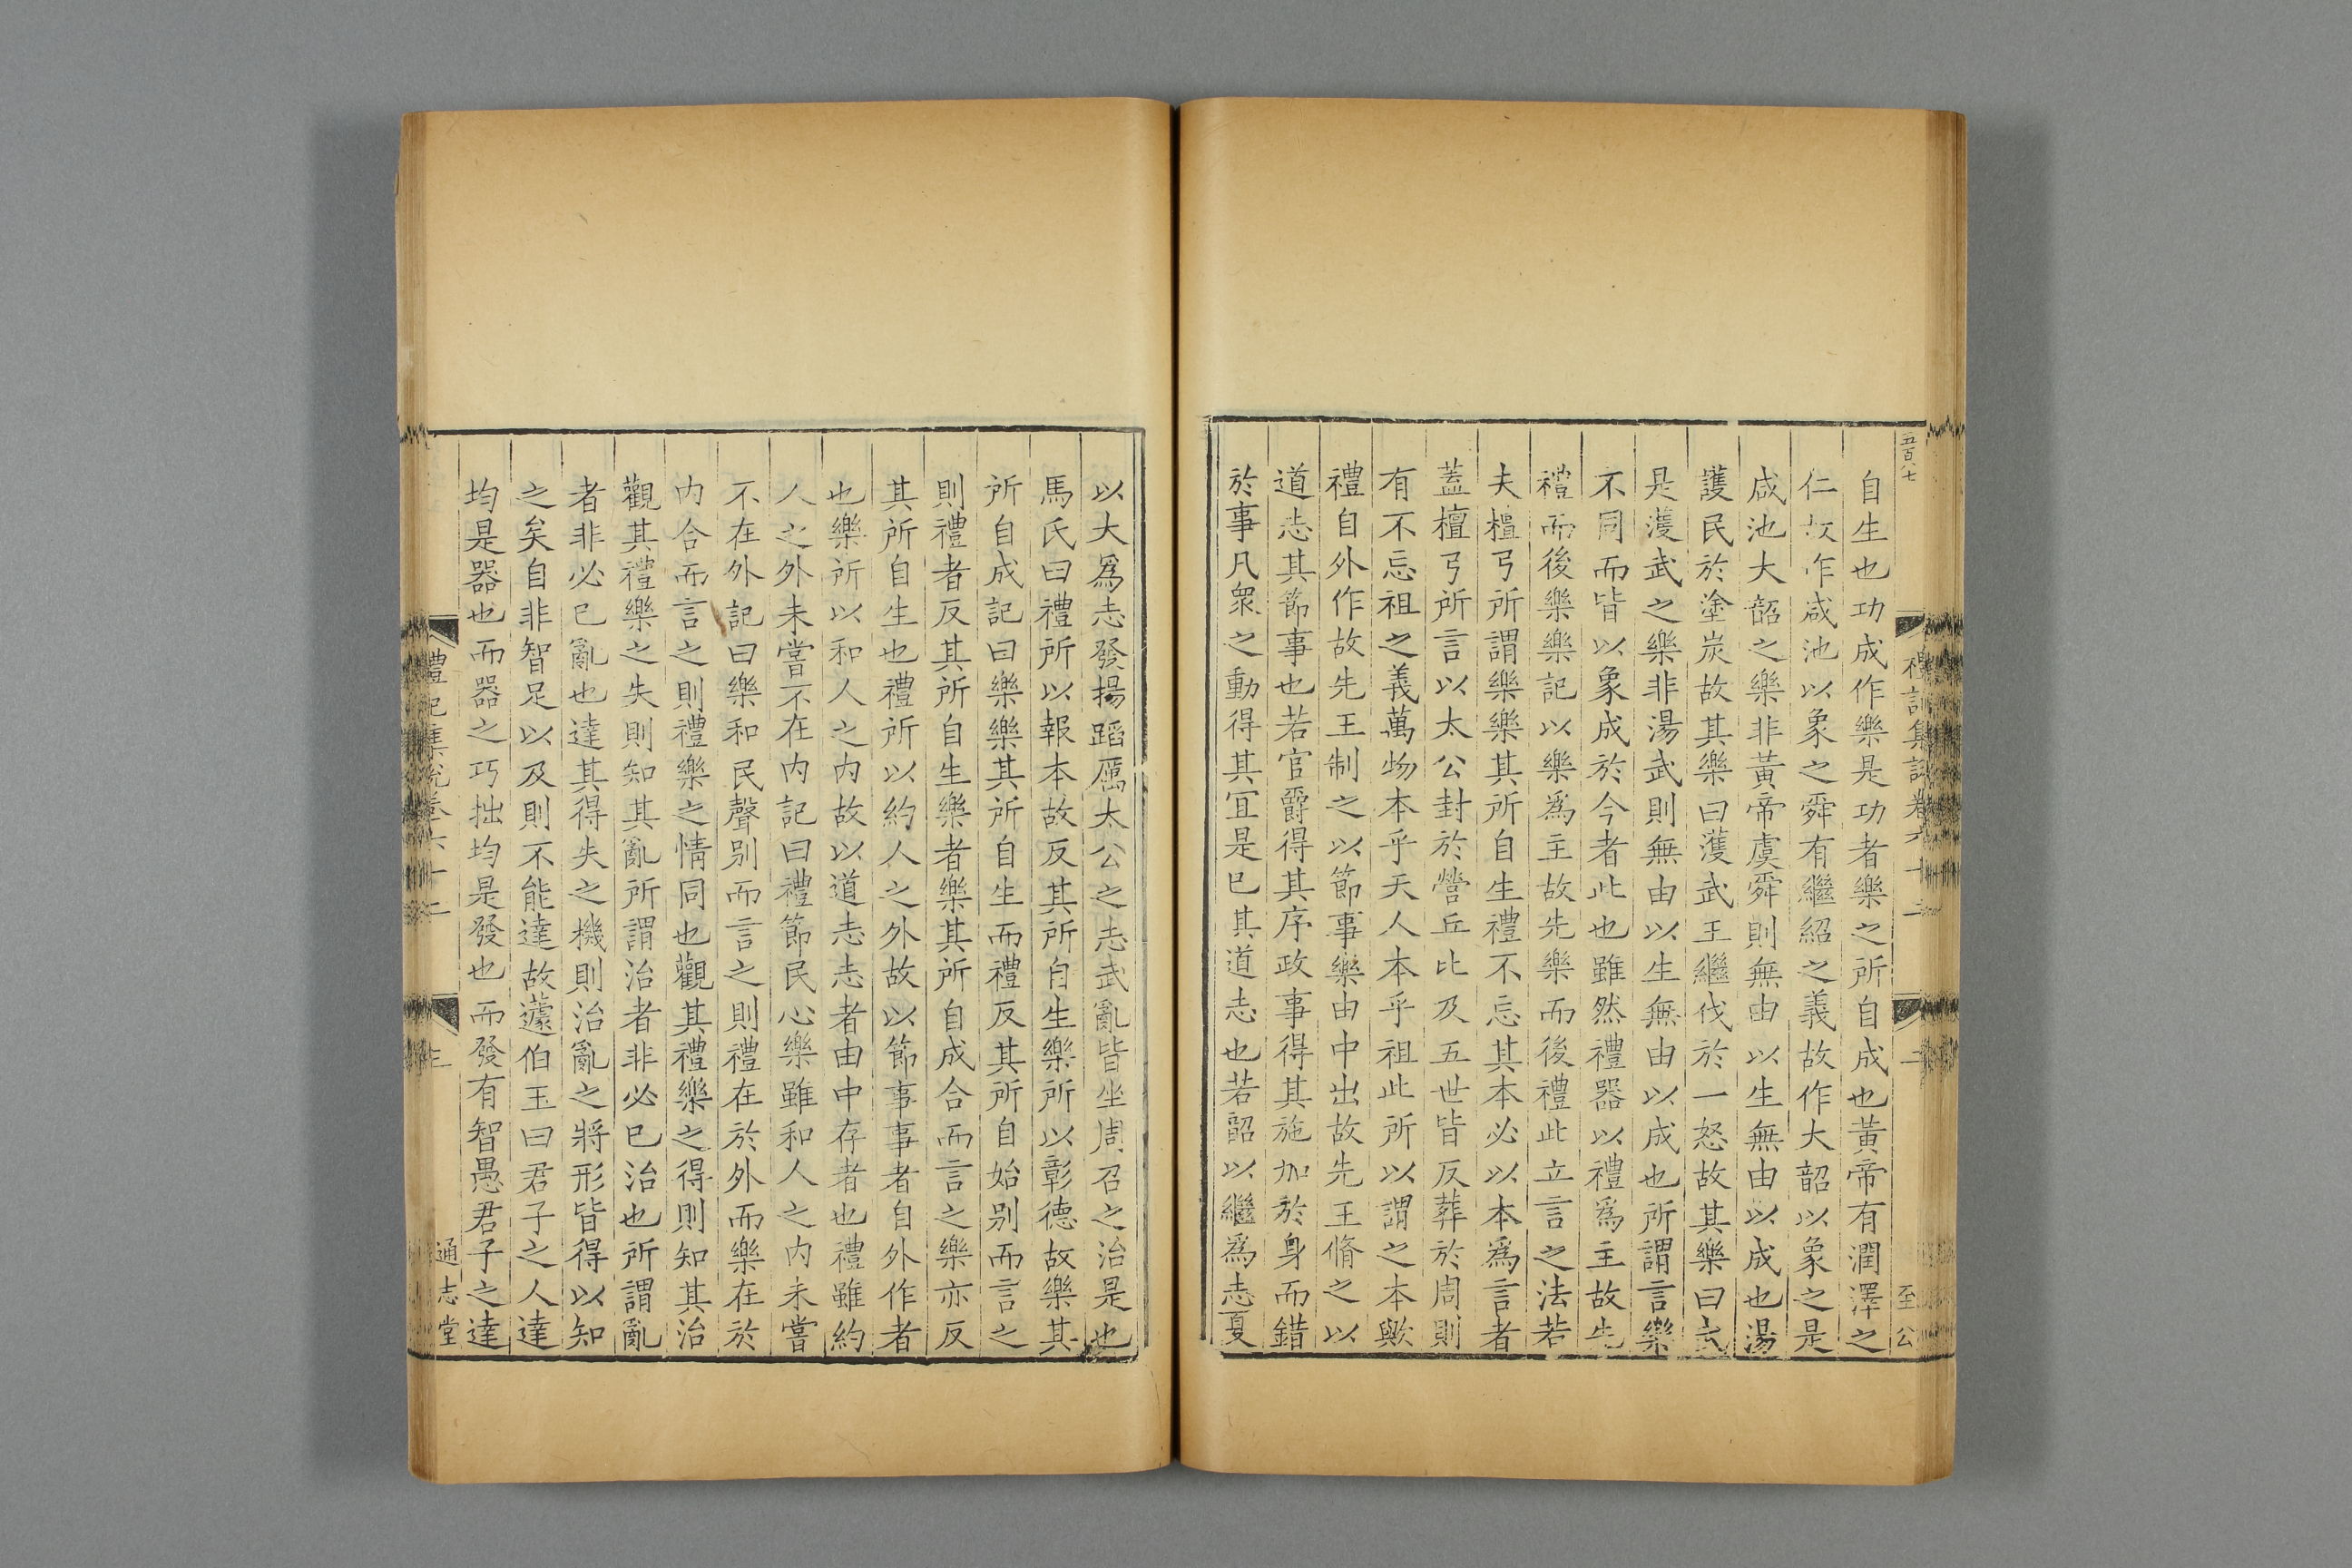 五百八七
自生也功成作樂是功者樂之所自成也黃帝有潤澤之
仁故作咸池以象之舜有繼紹之義故作大韶以象之是
咸池大韶之樂非黃帝虞舜則無由以生無由以成也湯
護民於塗炭故其樂曰濩武王繼伐於一怒故其樂曰武
是濩武之樂非湯武則無由以生無由以成也所謂言樂
不同而皆以象成於今者此也雖然禮器以禮爲主故先
禮而後樂樂記以樂爲主故先樂而後禮此立言之法若
夫檀弓所謂樂樂其所自生禮不忘其本必以本爲言者
蓋檀弓所言以太公封於營丘比及五世皆反葬於周則
有不忘祖之義萬物本乎天人本乎祖此所以謂之本歟
禮自外作故先王制之以節事樂由中出故先王脩之以
道志其節事也若官爵得其序政事得其施加於身而錯
於事凡衆之動得其宜是已其道志也若韶以繼爲志夏
禮記集說卷六十二
二
至公
以大爲志發揚蹈厲太公之志武亂皆坐周召之治是也
馬氏曰禮所以報本故反其所自生樂所以彰德故樂其
所自成記曰樂樂其所自生而禮反其所自始别而言之
則禮者反其所自生樂者樂其所自成合而言之樂亦反
其所自生也禮所以約人之外故以節事事者自外作者
也樂所以和人之内故以道志志者由中存者也禮雖約
人之外未嘗不在内記曰禮節民心樂雖和人之内未嘗
不在外記曰樂和民聲别而言之則禮在於外而樂在於
内合而言之則禮樂之情同也觀其禮樂之得則知其治
觀其禮樂之失則知其亂所謂治者非必已治也所謂亂
者非必已亂也達其得失之機則治亂之將形皆得以知
之矣自非智足以及則不能達故蘧伯玉曰君子之人達
均是器也而器之巧拙均是發也而發有智愚君子之達
禮記集說卷六十二
三
通志堂